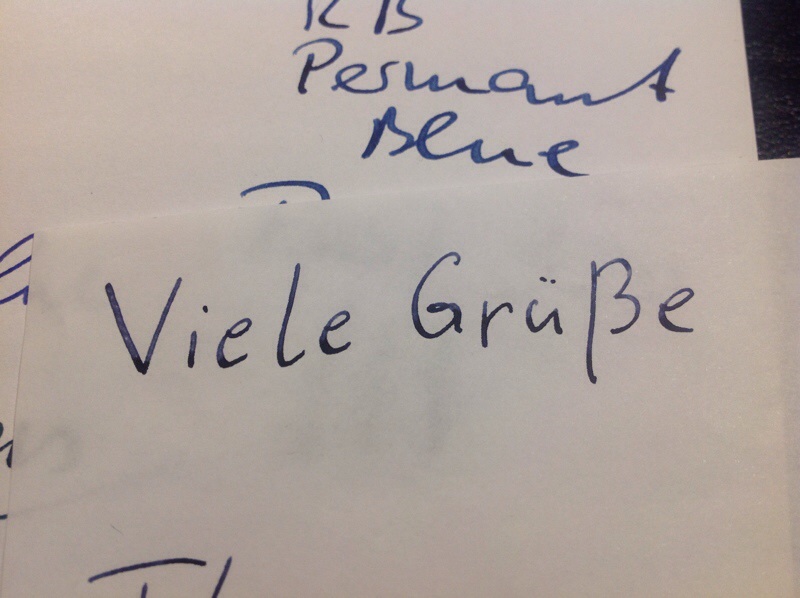 RB
Permant
Blue
Viele Grüße